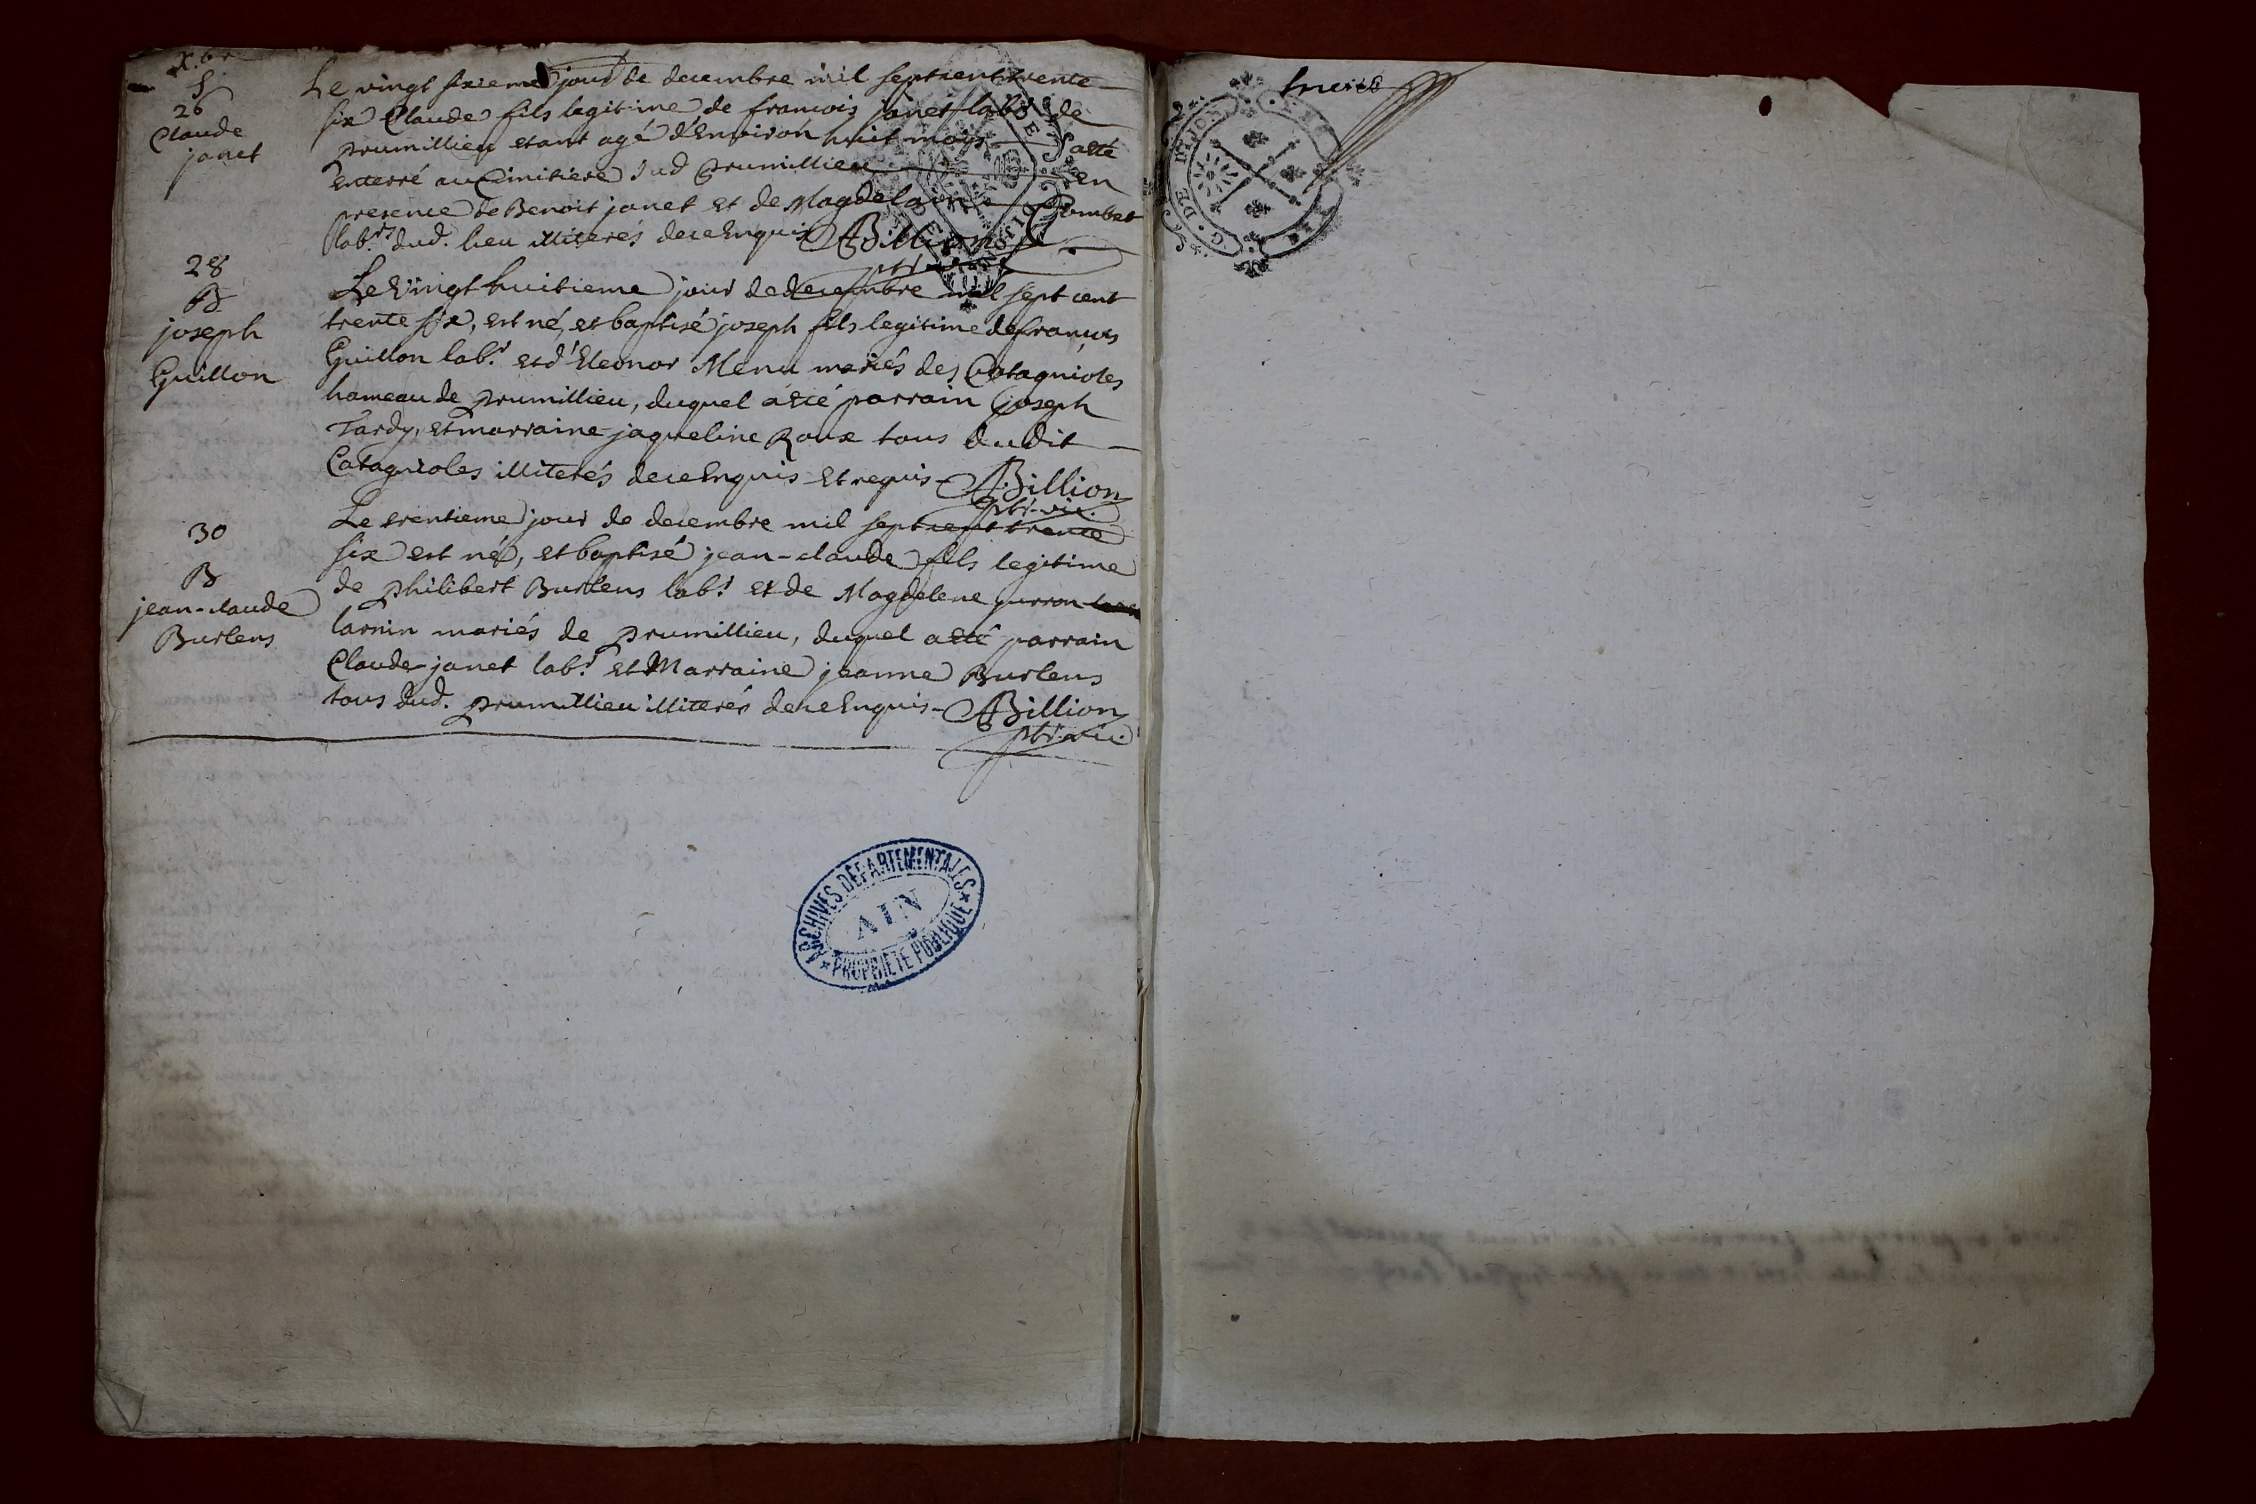 X.bre
S
26
Claude
janet
Le vingt sixieme jour de decembre mil septcent trente
six Claude fils legitime de francois janet labr de
prumillieu etant agé d'Environ huit mois a eté
enterré au Cimitiere dud Prumillieu en
presence de Benoit janet et de Magdelaine Combet
labrs dud. lieu illiterés de ce Enquis ABillion
ptr. vic.
28
B
joseph
Guillon
Le Vingt huitieme jour de decembre mil sept cent
trente six, est né, et baptisé joseph fils legitime de francois
Guillon labr. et d'Eleonor Menu mariés des Catagnioles
hameau de prumillieu, duquel a eté parrain joseph
Tardy, et marraine jaqueline Roux tous dudit
Catagnioles illiterés de ce Enquis Et requis - ABillion
ptr. vic.
30
B
jean-claude
Burlens
Le trentieme jour de decembre mil septcent trente
six est né, et baptisé jean-claude fils legitime
de philibert Burlens labr. et de Magdelene
larnin mariés de prumillieu, duquel a eté parrain
Claude janet labr. et Marraine jeanne Burlens
tous dud. prumillieu illiterés de ce Enquis - ABillion
ptr. vic.
ARCHIVES DÉPARTEMENTALES
AIN
PROPRIÉTÉ PUBLIQUE
G. DE DIJON